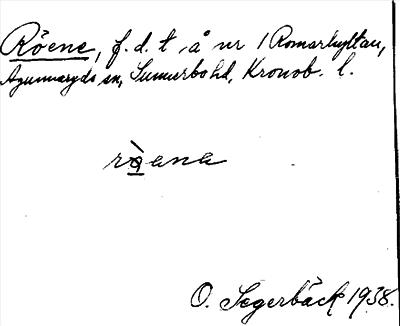 Röene, f. d. t. å nr 1 Romarhyltan,
Agunnaryds sn, Sunnerbo hd, Kronob. l.
ròͅana
O. Segerbäck 1938.